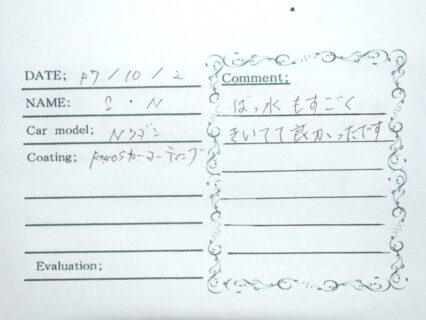 DATE; R7/10/2
Comment;
NAME: S・N
はっ水もすごく
Car model; Nワゴン
きいてて良かったです
Coating; カーコーティング
Evaluation;